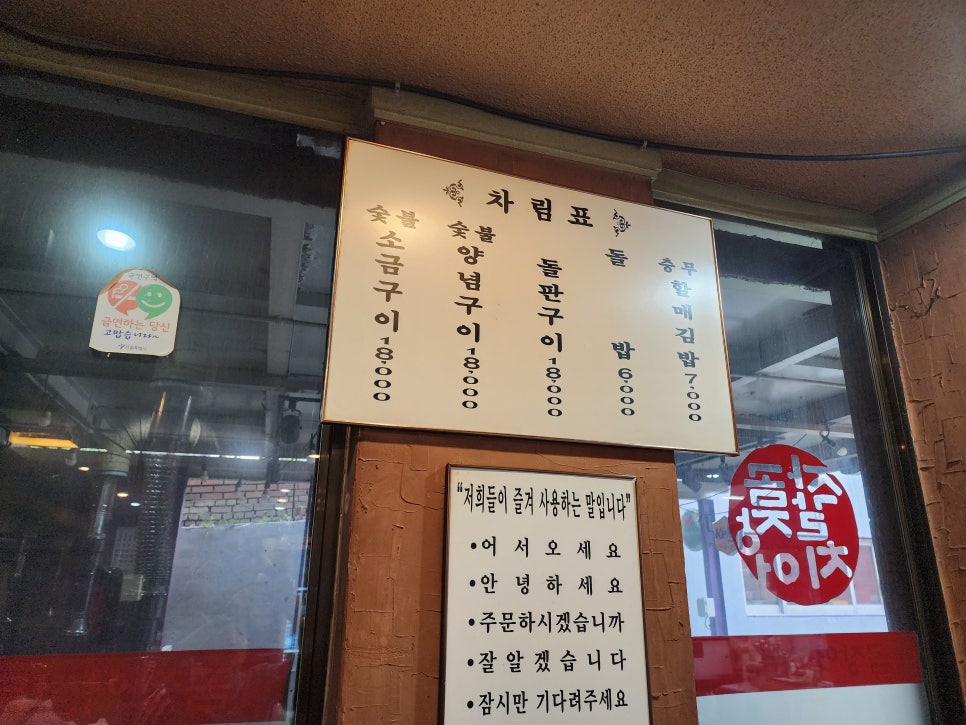 차림표
숯불소금구이 18,000
숯불양념구이 18,000
돌판구이 18,000
돌밥 6,000
충무할매김밥 7,000
"저희들이 즐겨 사용하는 말입니다"
•어서오세요
•안녕하세요
•주문하시겠습니까
•잘알겠습니다
•잠시만 기다려주세요
금연하는 당신
고맙습니다~
자갈치
꼼장어